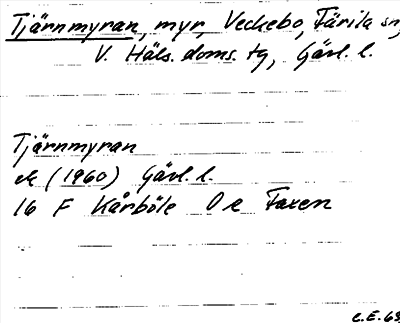 Tjärnmyran, myr, Veckebo, Färila sn,
V. Häls. doms. tg, Gävl. l.
Tjärnmyran
ek (1960) Gävl. l.
16 F Kårböle 0 e Faxen
C.E. 63